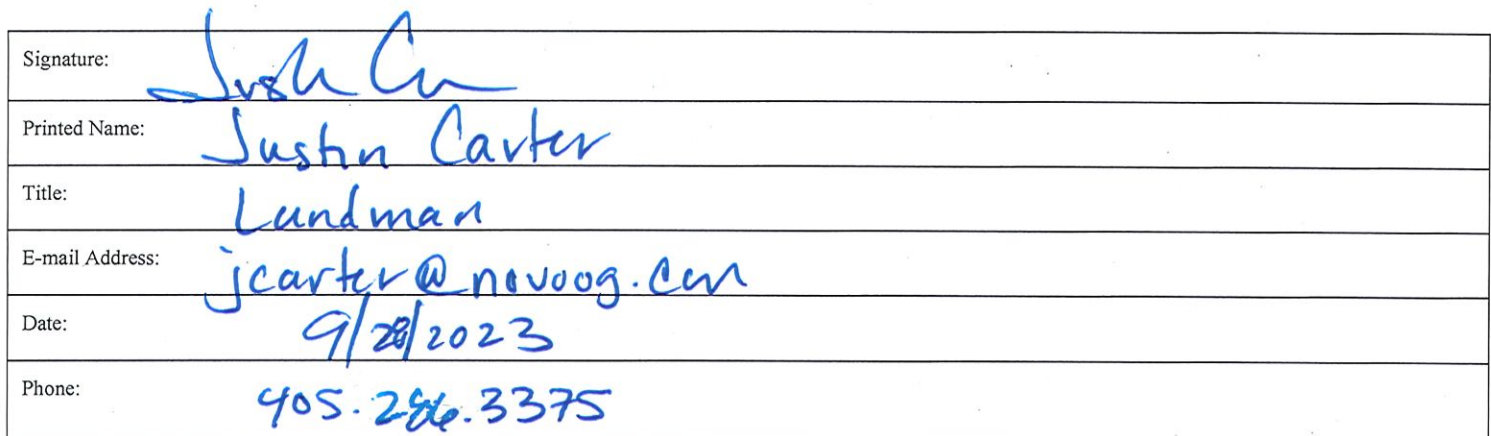 Signature:
Printed Name: Justin Carter
Title: Landman
E-mail Address: jcarter@novoog.com
Date: 9/28/2023
Phone: 405.286.3375